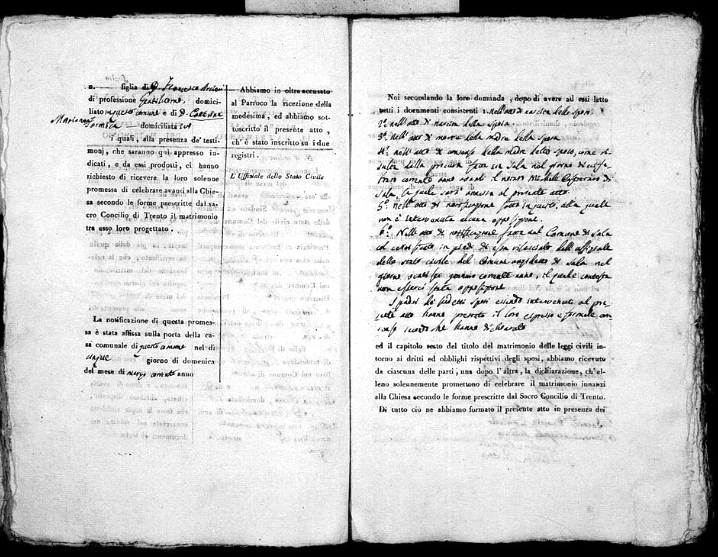 n. figlia di D. Francesco
di professione Gentiluomo, domici-
liato in questo comune e di D.
Marianna
domiciliata ivi
i quali, alla presenza de' testi-
moni, che saranno qui appresso in-
dicati, e da essi prodotti, ci hanno
richiesto di ricevere la loro solenne
promessa di celebrare avanti alla Chie-
sa secondo le forme prescritte dal sa-
cro Concilio di Trento il matrimonio
tra esso loro progettato.
La notificazione di questa promes-
sa è stata affissa sulla porta della ca-
sa comunale di questo comune nel dì
cinque giorno di domenica
del mese di marzo corrente anno
Abbiamo in oltre accusato
al Parroco la ricezione della
medesima, ed abbiamo sot-
toscritto il presente atto,
ch'è stato inscritto su i due
registri.
L'Uffiziale dello Stato Civile
Noi secondando la loro domanda, dopo di avere ad essi letto
tutti i documenti consistenti 1. Nell'atto di nascita dello sposo.
2.° nell'atto di nascita della sposa.
3.° nell'atto di morte della madre della sposa
4.° nell'atto di consenso della madre dello sposo, come ri-
sulta dalla procura fatta in Sala nel giorno
corrente anno il notaro Michele
Sala, la quale sarà annessa al presente atto.
5.° nell'atto di notificazione fatta in questo, alla quale
non è intervenuta alcuna opposizione.
6.° Nell'atto di notificazione fatta nel Comune di Sala
ed certificato in piedi di essa rilasciato dall'uffiziale
dello stato civile del Comune di Sala nel
giorno gennaio corrente anno, il quale
non esserci stata opposizione
I padri de' sudetti sposi essendo intervenuti al pre-
sente atto hanno prestato il loro espresso e formale con-
senso hanno dichiarato
ed il capitolo sesto del titolo del matrimonio delle leggi civili in-
torno ai dritti ed obblighi rispettivi degli sposi, abbiamo ricevuto
da ciascuna delle parti, una dopo l'altra, la dichiarazione, ch'el-
leno solennemente promettono di celebrare il matrimonio innanzi
alla Chiesa secondo le forme prescritte dal Sacro Concilio di Trento.
Di tutto ciò ne abbiamo formato il presente atto in presenza dei